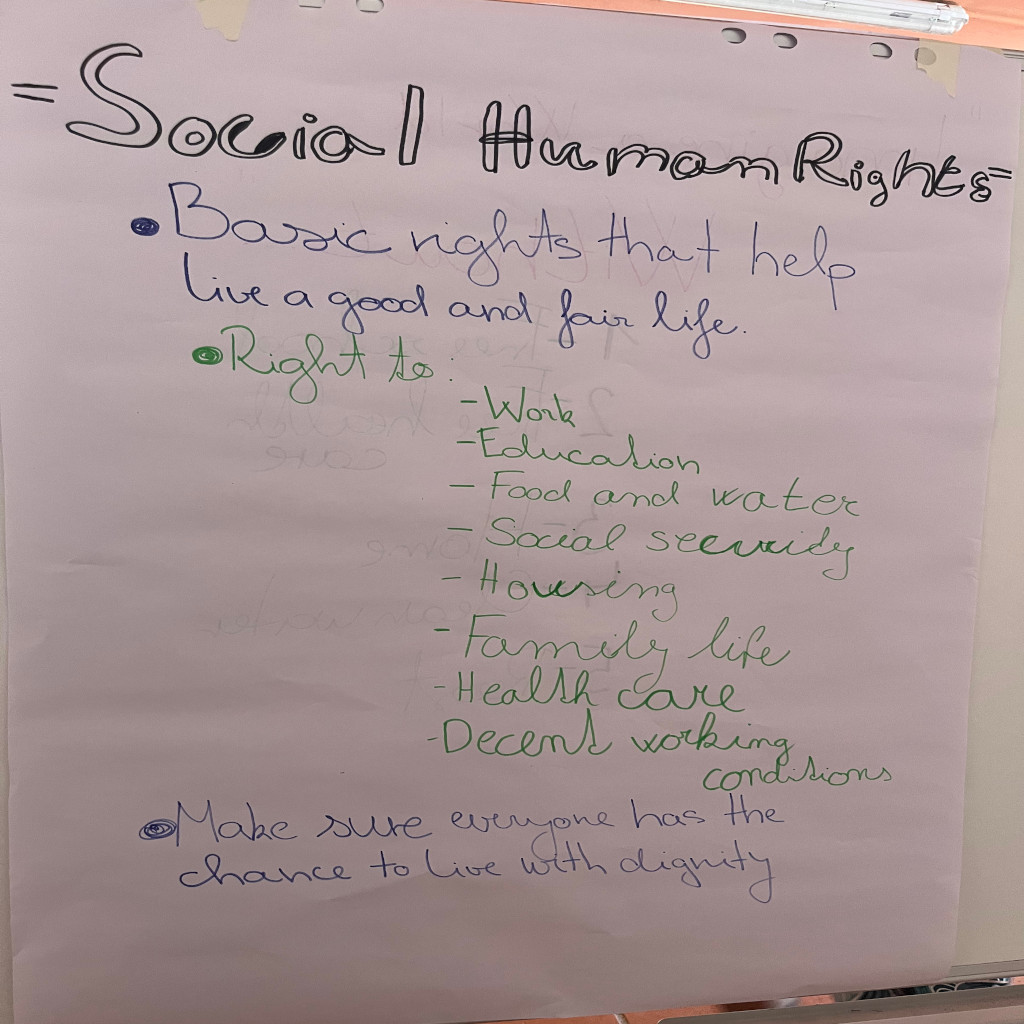 = Social Human Rights =
• Basic rights that help
live a good and fair life.
• Right to :
- Work
- Education
- Food and water
- Social security
- Housing
- Family life
- Health care
- Decent working
conditions
• Make sure everyone has the
chance to live with dignity